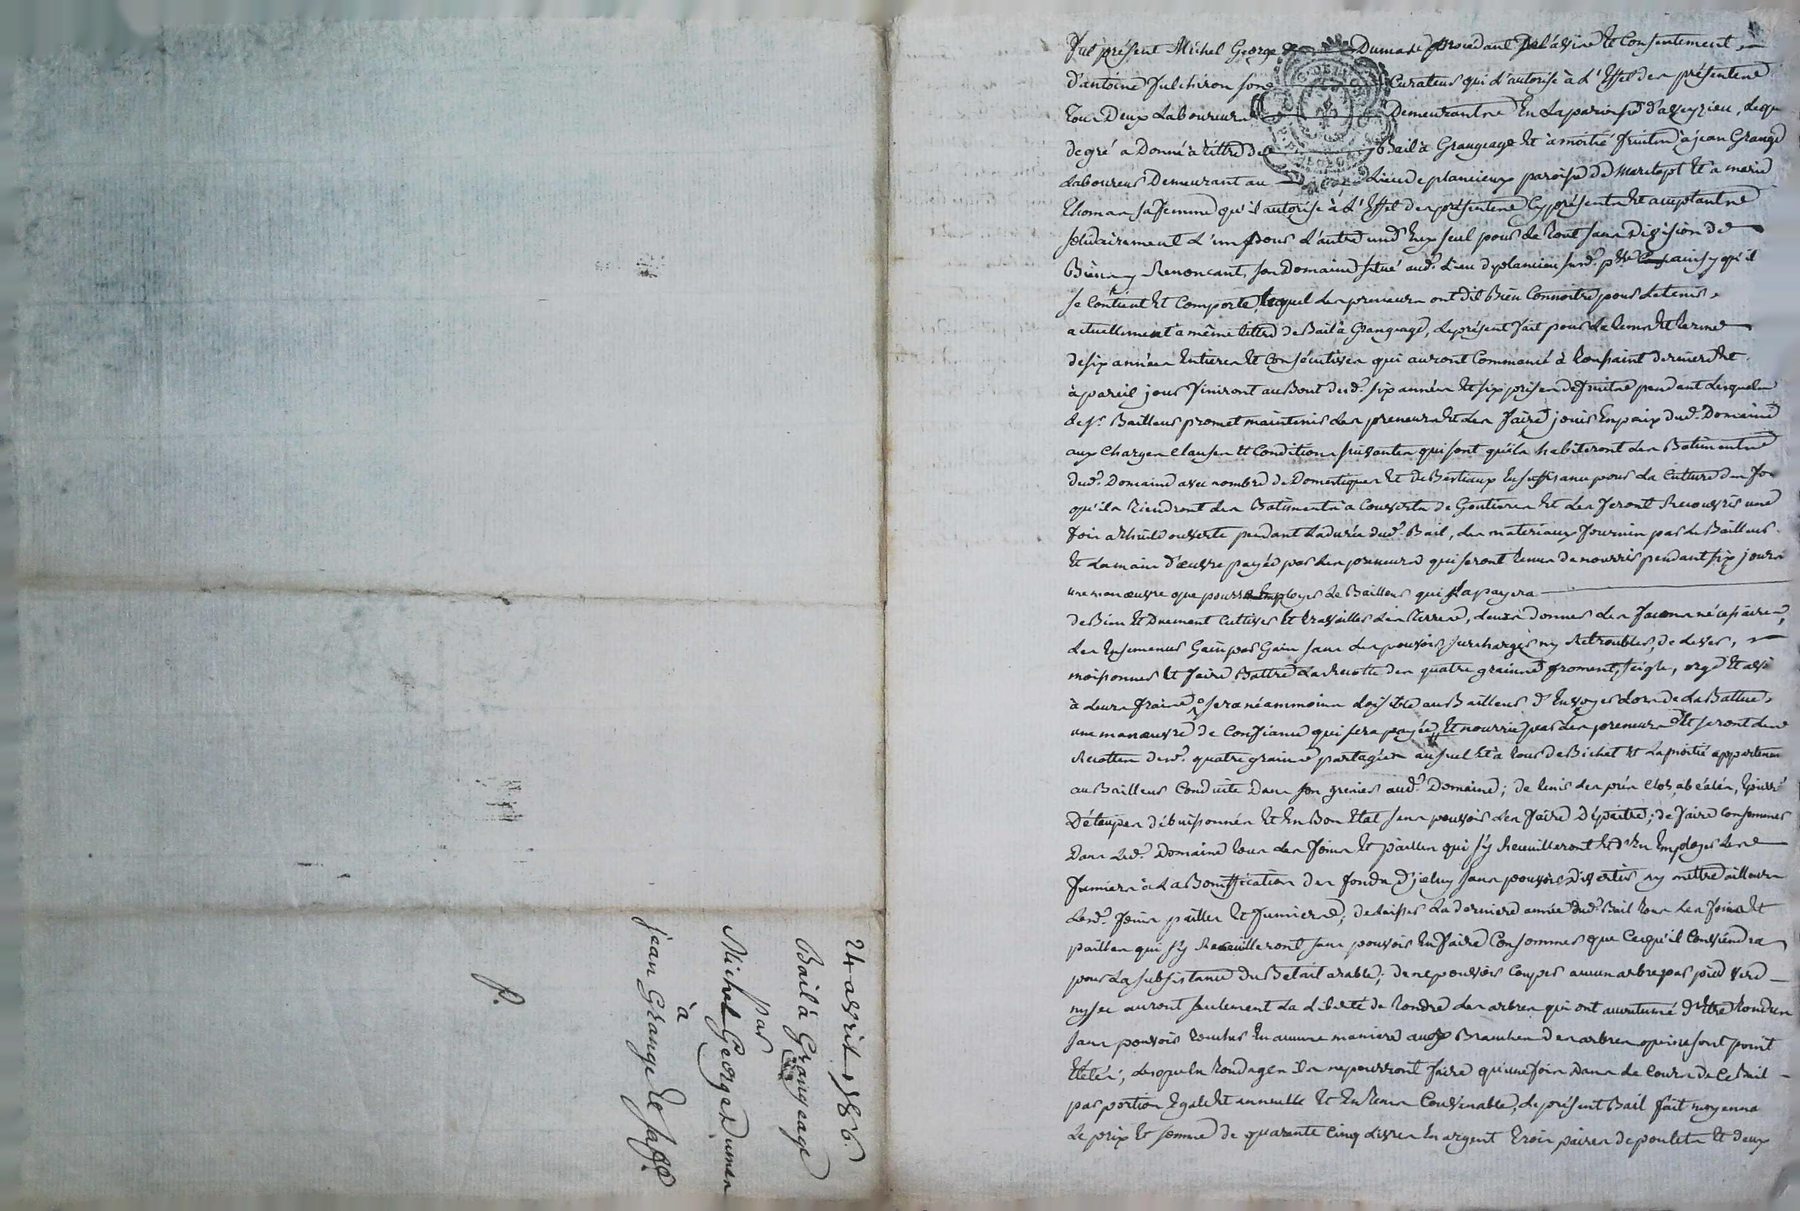 24 avril 1786.
Bail à Grangeage
par
Michel George Dumas
à
jean Grange et sa f.e
p.
fut présent Michel George Dumas procedant de l'avis et Consentement
d'antoine fulchiron son Curateur qui l'autorise à l'Effet des présentes
tous Deux Laboureurs Demeurants En la paroisse d'aveyzieu, lequel
de gré a Donné à tittre de Bail à Grangeage Et à moitié fruits à jean Grange
Laboureur Demeurant au Lieu de plancieux paroisse de Marclopt Et a marie
thomas sa femme qu'il autorise à l'Effet des présentes cy présents Et acceptants
solidairement l'un pour l'autre un d'Eux seul pour le tout sans Division de
Biens y Renoncant, son Domaine situé aud. Lieu de plancieu susd. p.sse ainsy qu'il
se Contient Et Comporte, lequel les preneurs ont dit Bien Connoitre pour le tenir
actuellement a même tittre de Bail à Grangeage, le présent fait pour le tems Et terme
de six années Entieres Et Consécutives qui auront Commencé à toussaint derniere Et
à pareil jour finiront au Bout desd. six années Et six prises de fruits pendant lesquels
le s.r Bailleur promet maintenir les preneurs Et les faire jouir En paix dud. Domaine
aux Charges Clauses Et Conditions suivantes qui sont qu'ils habiteront les Batiments
dud. Domaine avec nombre de Domestiques Et de Bestiaux En suffisance pour la Culture des fonds
qu'ils tiendront les Batiments à Couverts de Goutieres Et les feront Recouvrir une
fois a thuile ouverte pendant la durée dud. Bail, les materiaux fournis par le Bailleur
Et la main d'œuvre payée par les preneurs qui seront tenus de nourrir pendant six jours
une manœuvre que pourra Employer le Bailleur qui la payera
de Bien Et Duement Cultiver Et travailler les terres, leurs donner les facons nécessaires,
les Ensemencer Gain par Gain sans les pouvoir surcharger ny Retroubler, de lever,
moissonner Et faire Battre la Recolte des quatre grains froment, seigle, orge Et avoine
à leurs fraix, sera néammoins loisible au Bailleur d'Envoyer lors de la Battue
une manœuvre de Confiance qui sera payée Et nourrie par les preneurs Et seront les
Recoltes desd. quatre grains partagées Et à tour de Bichet Et la moitié appartenant
au Bailleur Conduite Dans son grenier aud. Domaine; de tenir les prés Clos abéalés,
Détaupés débuissonnés Et En Bon Etat sans pouvoir les faire Dépaitre; de faire Consommer
Dans led. Domaine tous les foins Et pailles qui s'y Recueilleront Et d'En Employer les
fumiers à la Bonification des fonds d'jceluy sans pouvoir divertir ny mettre ailleurs
lesd. foins pailles Et fumiers; de laisser la derniere année dud. Bail tous les foins Et
pailles qui s'y Recueilleront sans pouvoir En faire Consommer que Ce qu'il Conviendra
pour la subsistance du Betail arable; de ne pouvoir Couper aucun arbre par pied verd
ny sec auront seulement la liberté de tondre les arbres qui ont accoutumé d'Etre tondus
sans pouvoir toucher En aucune maniere aux Branches des arbres qui ne sont point
Etetés; lesquels tondages ils ne pourront faire qu'une fois Dans le Cours de Ce Bail
par portion Egale Et annuelle Et En tems Convenable; le présent Bail fait moyennant
le prix Et somme de quarante Cinq livres En argent trois paires de poulets Et deux